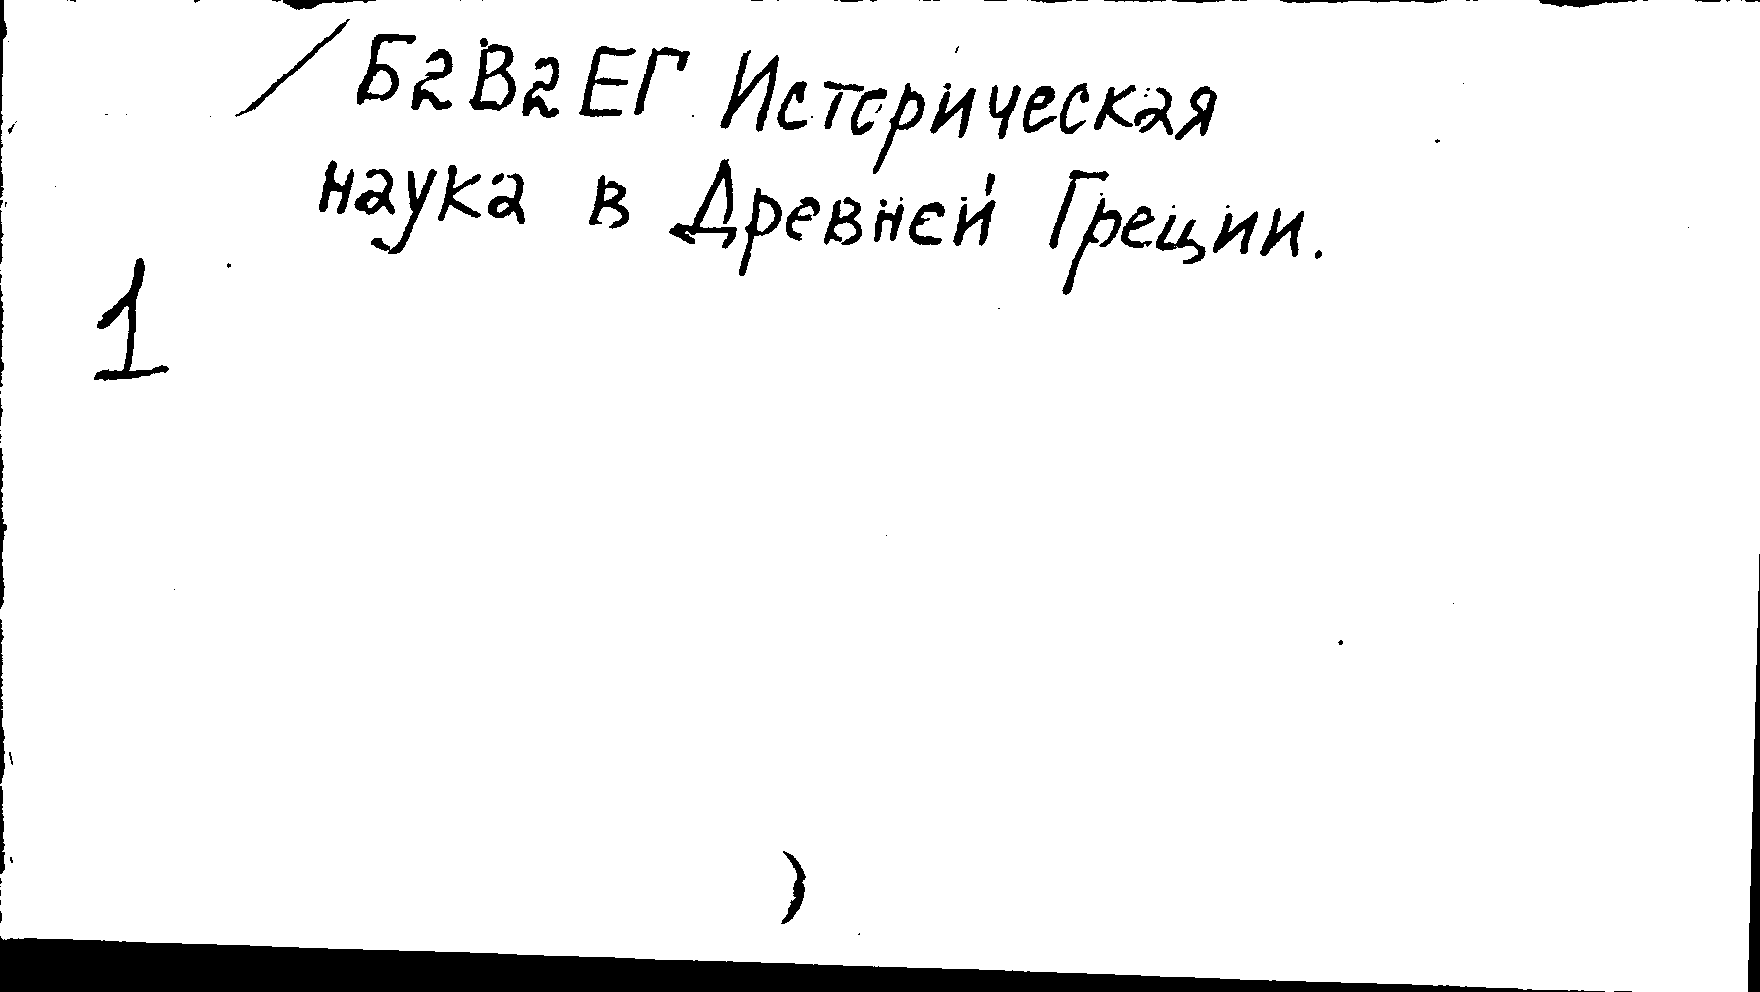 /Б2В2ЕГ Историческая
наука в Древней Греции.
1
)